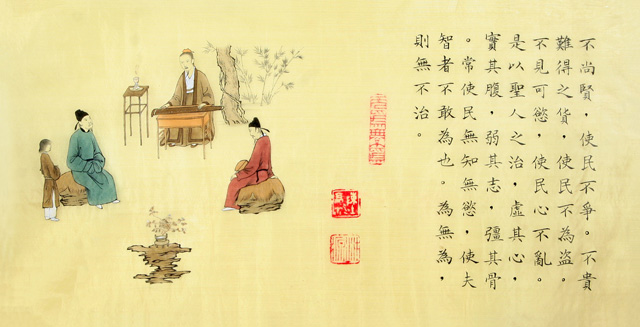 不尚賢，使民不爭。不貴
難得之貨，使民不為盜。
不見可慾，使民心不亂。
是以聖人之治，虛其心，
實其腹，弱其志，彊其骨
。常使民無知無慾，使夫
智者不敢為也。為無為，
則無不治。